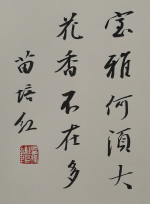 室雅何须大
花香不在多
苗培红